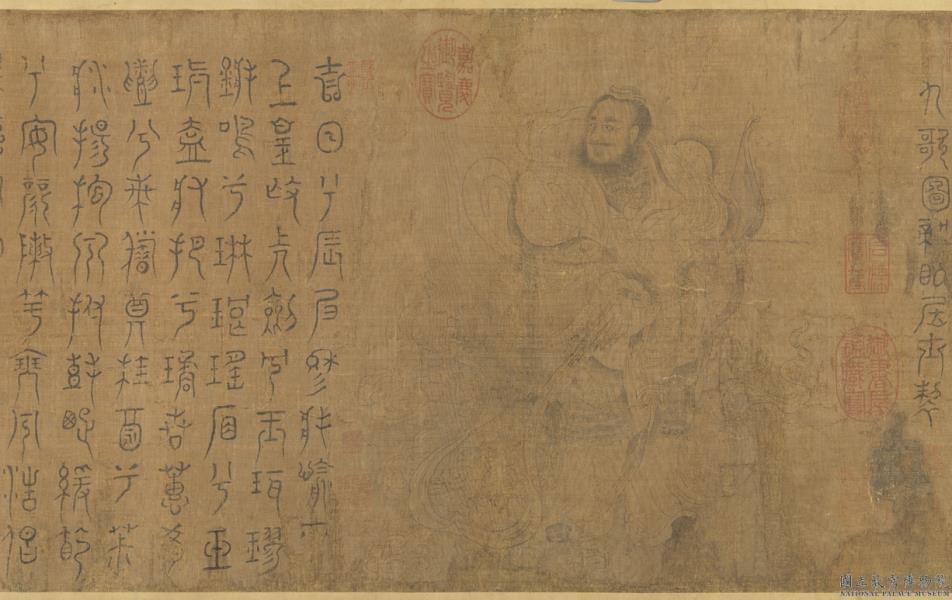 九歌圖龍眠居士製
嘉慶御覽之寶
吉日兮辰良穆將愉兮
上皇撫長劍兮玉珥璆
鏘鳴兮琳琅瑤席兮玉
瑱盍將把兮瓊芳蕙肴
蒸兮蘭藉奠桂酒兮椒
漿揚枹兮拊鼓疏緩節
兮安歌陳竽瑟兮浩倡
國立故宮博物院
NATIONAL PALACE MUSEUM